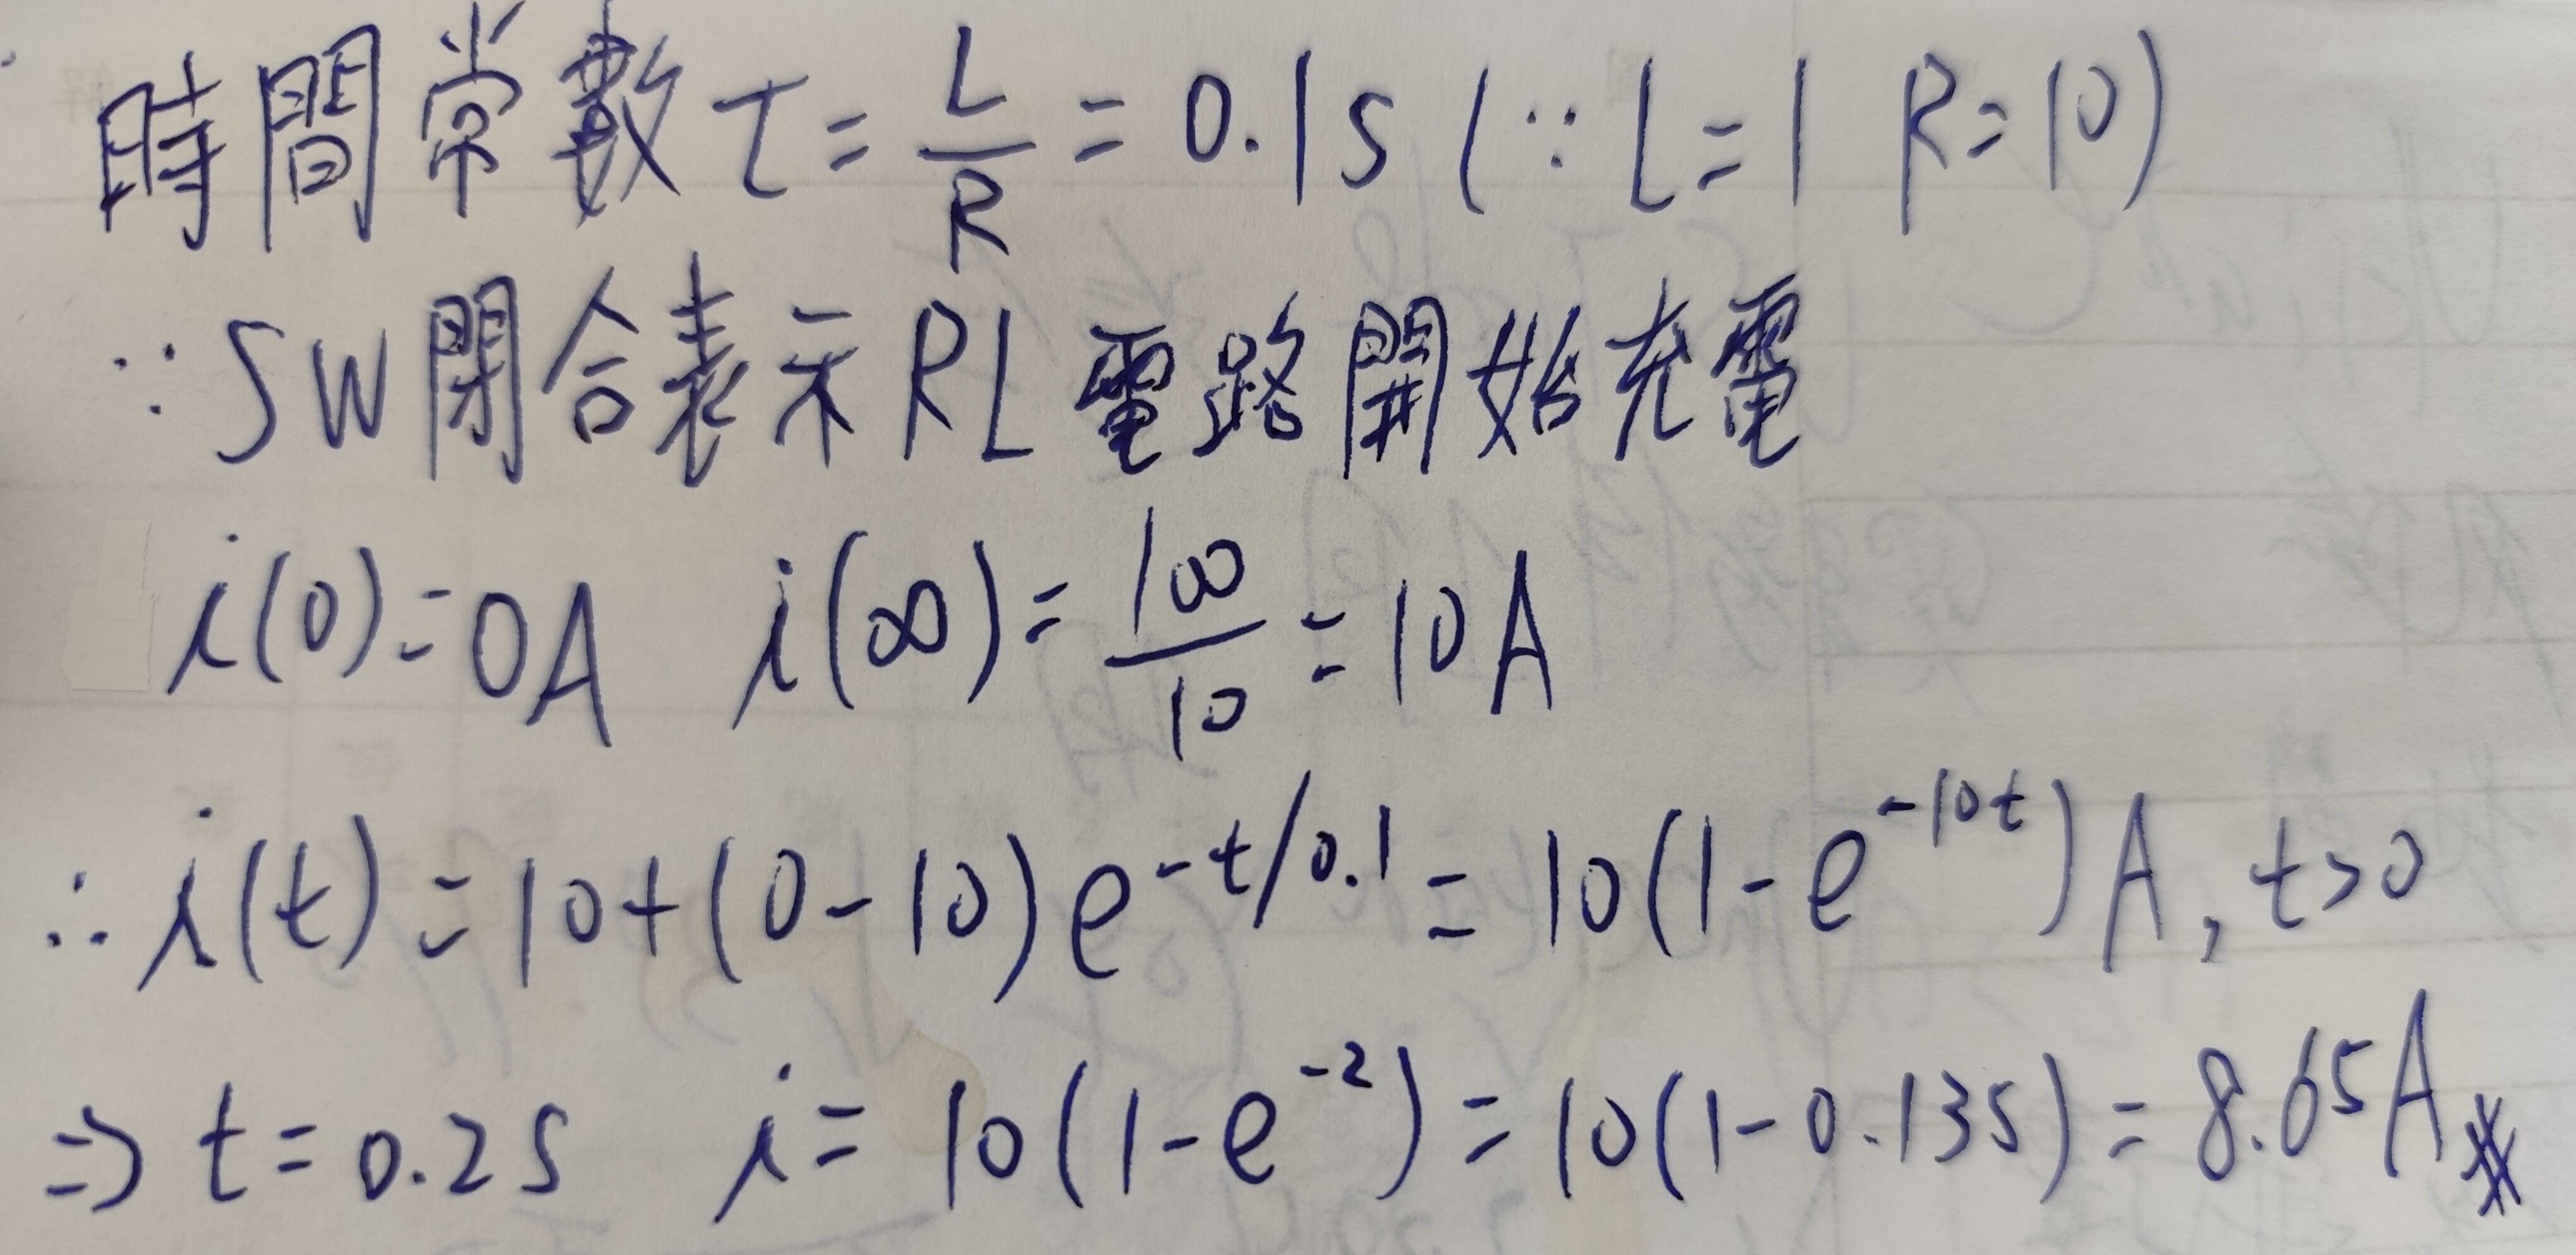 時間常數 τ = L/R = 0.1s (∵ L=1 R=10)
∵ SW閉合表示RL電路開始充電
i(0)=0A i(∞)=100/10=10A
∴ i(t)=10+(0-10)e^-t/0.1=10(1-e^-10t)A, t>0
⇒ t=0.2s i=10(1-e^-2)=10(1-0.135)=8.65A#